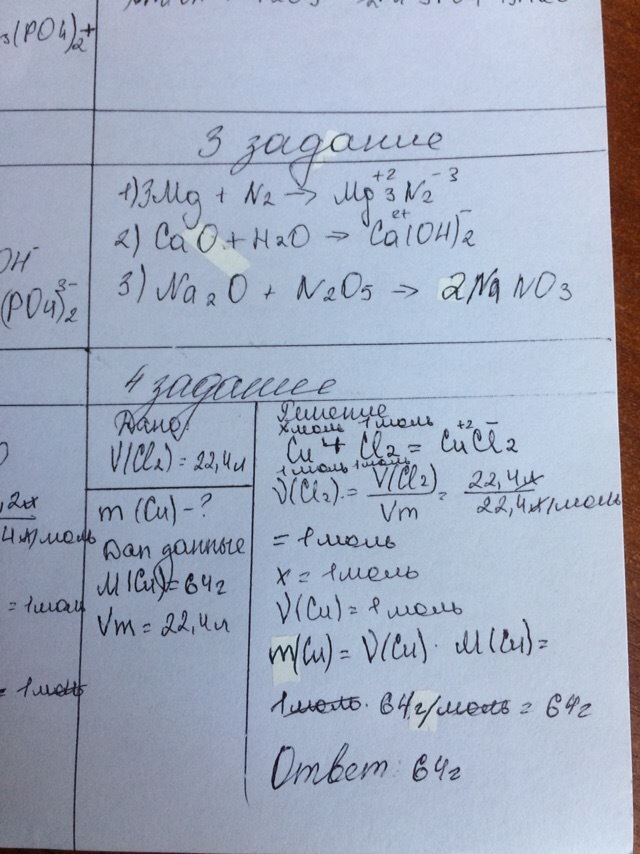 3(PO4)2+
3 задание
1) 3Mg + N2 → Mg+2 3N2-3
2) CaO + H2O → Ca2+(OH)-2
OH-
(PO4)3-2
3) Na2O + N2O5 → 2NaNO3
4 задание
Дано:
V(Cl2) = 22,4л
m(Cu) - ?
Доп данные
M(Cu) = 64г
Vm = 22,4л
Решение
xмоль 1моль
Cu + Cl2 = Cu+2Cl-2
1моль 1моль
ν(Cl2) = V(Cl2)/Vm = 22,4л/22,4л/моль
= 1моль
x = 1моль
ν(Cu) = 1моль
m(Cu) = ν(Cu) · M(Cu) =
1моль · 64г/моль = 64г
Ответ: 64г
4л/моль
= 1моль
= 1моль